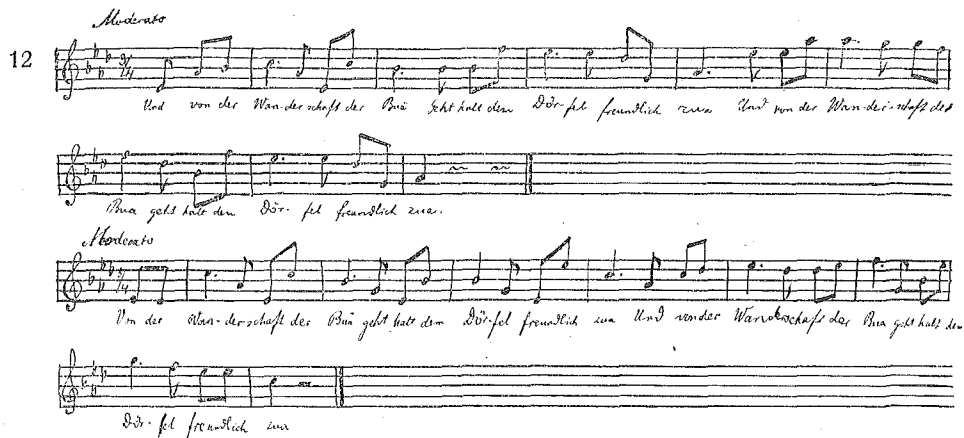 Moderato
12
3/4
Und von der Wan-der-schaft der Bua geht halt dem Dör-fel freundlich zua Und von der Wan-der-schaft der
Bua geht halt dem Dör-fel freundlich zua.
Moderato
3/4
Von der Wan-derschaft der Bua geht halt dem Dör-fel freundlich zua Und von der Wanderschaft der Bua geht halt dem
Dör-fel freundlich zua